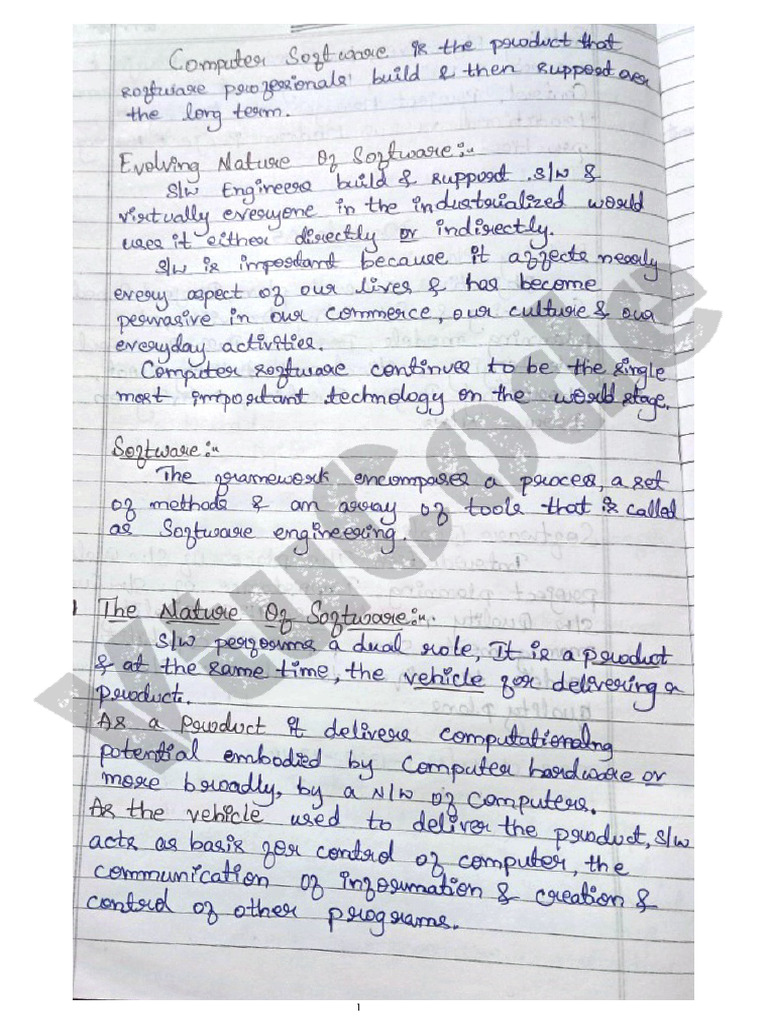 Computer Software is the product that
software professionals build & then support over
the long term.
Evolving Nature Of Software:-
S/w Engineers build & support S/w &
virtually everyone in the industrialized world
uses it either directly or indirectly.
S/w is important because it affects nearly
every aspect of our lives & has become
pervasive in our commerce, our culture & our
everyday activities.
Computer software continues to be the single
most important technology on the world stage.
Software:-
The framework encompases a process, a set
of methods & an array of tools that is called
as Software engineering.
1 The Nature Of Software:-
S/w performs a dual role, It is a product
& at the same time, the vehicle for delivering a
product.
As a product it delivers computationalng
potential embodied by Computer hardware or
more broadly, by a N/w of Computers.
As the vehicle used to deliver the product, S/w
acts as basis for control of computer, the
communication of information & creation &
control of other programs.
VtuCode
1